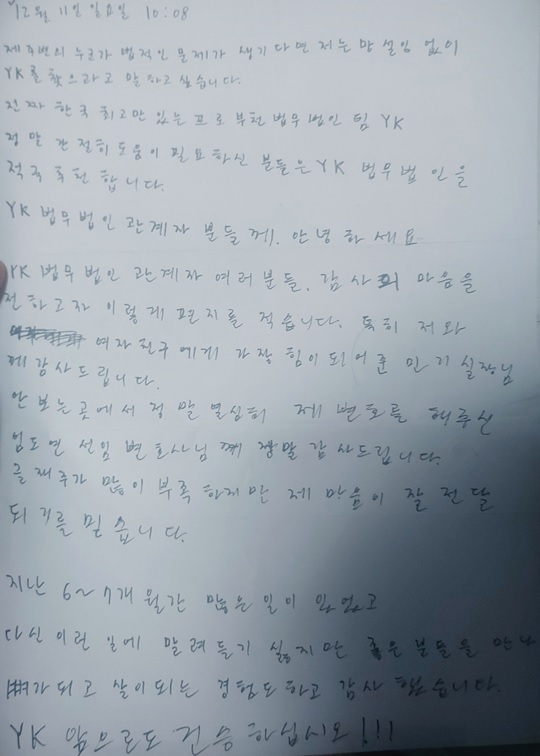 12월 11일 일요일 10:08
제 주변의 누군가 법적인 문제가 생기다면 저는 망설임 없이
YK를 찾으라고 말하고 싶습니다.
진짜 한국 최고만 있는 프로 부천법무법인 팀 YK
정말 간절히 도움이 필요하신 분들은 YK 법무법인을
적극 추천 합니다.
YK 법무법인 관계자 분들께. 안녕하세요
YK 법무법인 관계자 여러분들. 감사의 마음을
전하고자 이렇게 편지를 적습니다. 특히 저와
여자친구에게 가장 힘이 되어 준 민기 실장님
께 감사드립니다.
안 보는 곳에서 정말 열심히 제 변호를 해주신
임도연 선임 변호사님께 정말 감사드립니다.
글재주가 많이 부족하지만 제 마음이 잘 전달
되기를 믿습니다.
지난 6~7개월간 많은 일이 있었고
다신 이런 일에 말려들기 싫지만 좋은 분들을 만나
가 되고 살이되는 경험도하고 감사 했습니다.
YK 앞으로도 건승 하십시오!!!